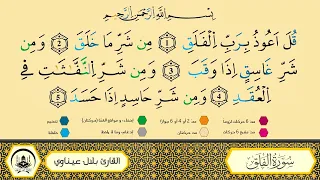 بِسْمِ اللَّهِ الرَّحْمَٰنِ الرَّحِيمِ
قُلْ أَعُوذُ بِرَبِّ الْفَلَقِ 1 مِن شَرِّ مَا خَلَقَ 2 وَمِن
شَرِّ غَاسِقٍ إِذَا وَقَبَ 3 وَمِن شَرِّ النَّفَّٰثَٰتِ فِي
الْعُقَدِ 4 وَمِن شَرِّ حَاسِدٍ إِذَا حَسَدَ 5
القارئ بلال عيناوي
سُورَةُ الفَلَقِ